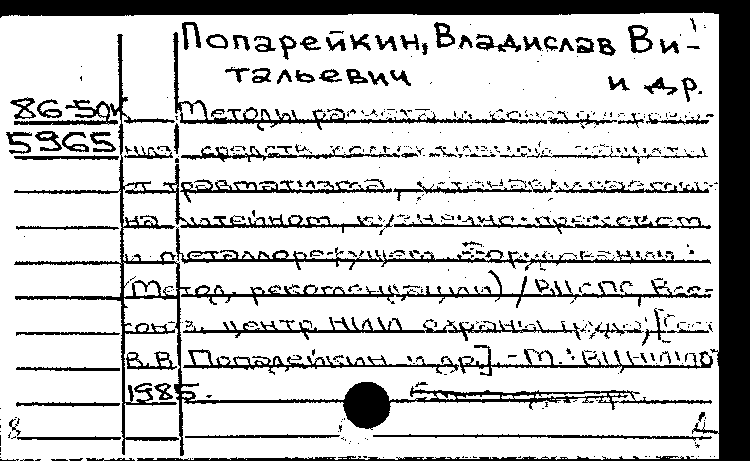 Попарейкин, Владислав Ви-
тальевич и др.
86-50К Методы расчета и конструирова-
5965 ния средств коллективной защиты
от травматизма, устанавливаемых
на литейном, кузнечно-прессовом
и металлорежущем оборудовании:
(Метод. рекомендации) / ВЦСПС, Все-
союз. центр. НИИ охраны труда; [Сост.
В.В. Попарейкин и др.]. - М.: ВЦНИИОТ
1985.
8